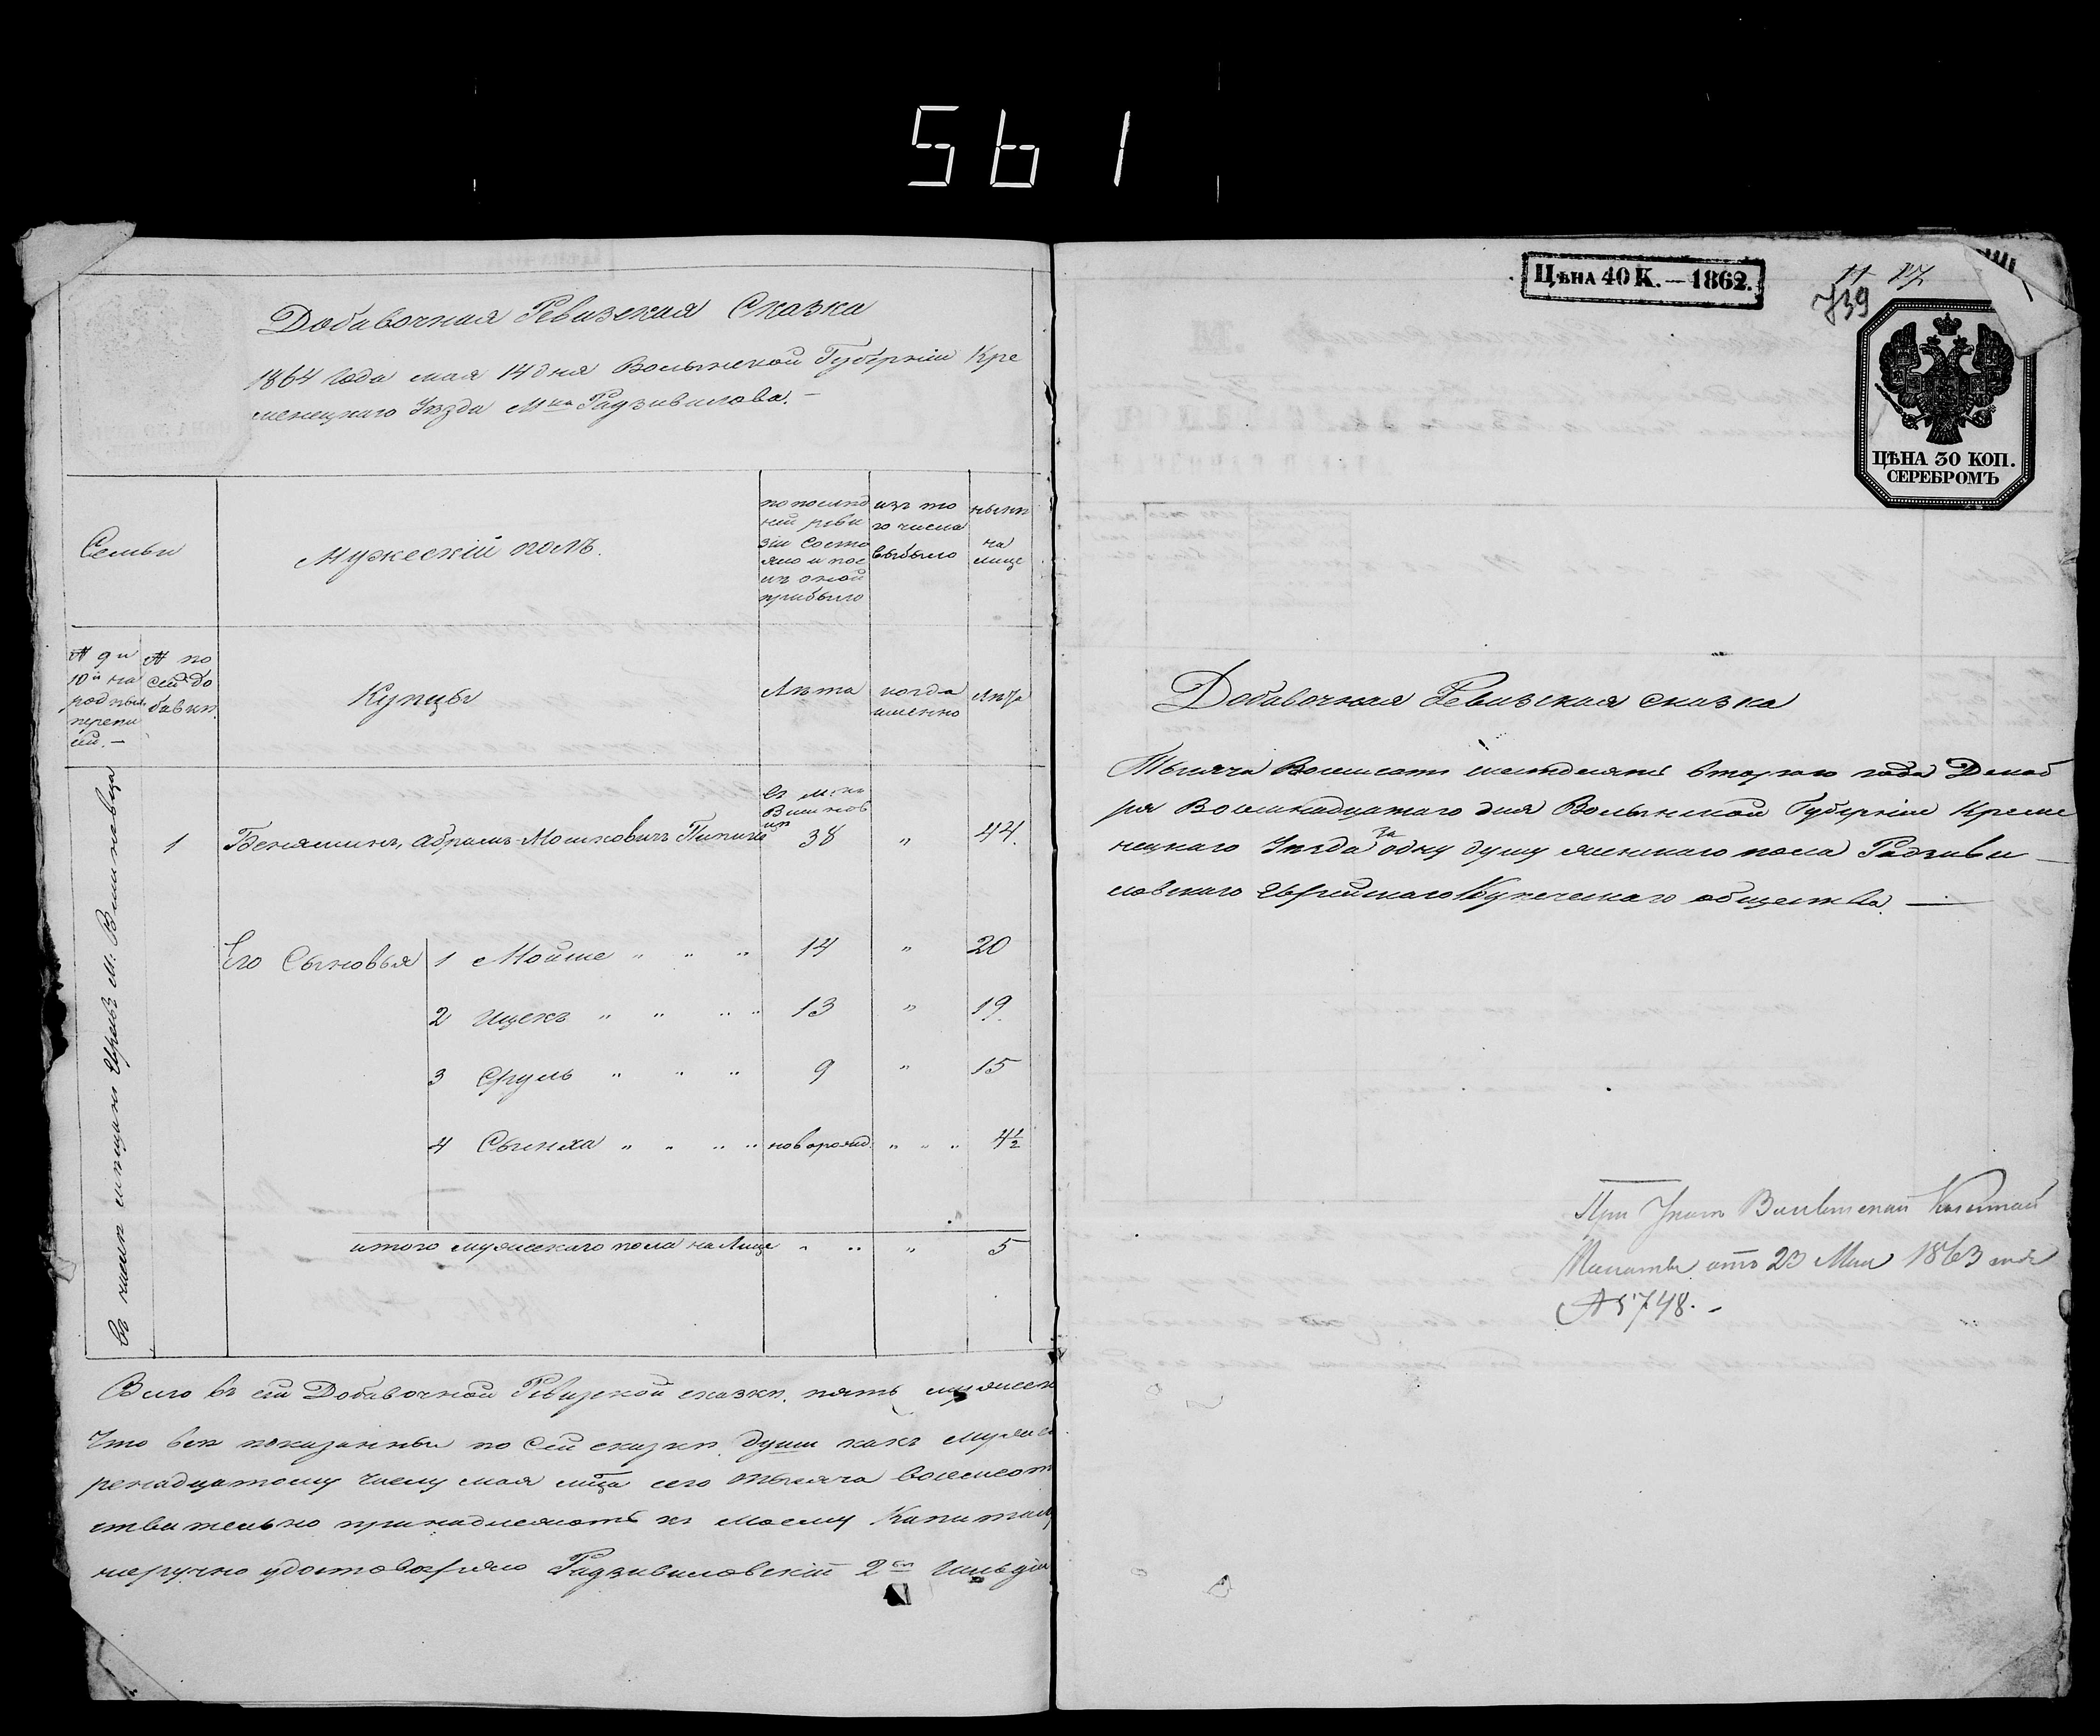 561
Добавочная Ревизская Сказка
1864 года мая 14 дня Волынской Губерніи Кре
менецкаго Уѣзда М-ка Радзивилова. —
Семьи
Мужескій полъ.
по послѣд
ней реви
зіи состо
яло и пос
лѣ оной
прибыло
изъ то
го числа
выбыло
нынѣ
на
лице
№ 9 и
10й на
родныхъ
перепи
сей. —
№ по
сей до
бавкѣ
Купцы
Лѣта
когда
именно
Лѣта
въ м-кѣ
Вишнев
цѣ
1 Беняминъ, Абрамъ-Мошковичъ 38 " 44.
Его Сыновья 1 Мойше " " " 14 " 20
2 Ицекъ " " " " 13 " 19.
3 Сруль " " " 9 " 15
4 Сымха " " " " новорожд. " " " 4½
итого мужескаго пола на Лице " " " 5
Всего въ сей Добавочной Ревизской сказкѣ, пять мужеск
Что всѣ показанные по сей сказкѣ души какъ мужес
ренадцатому числу мая м-ца сего тысяча восемсот
ствительно принадлежатъ къ моему Капитал
норучно удостовѣряю Радзивиловскій 2-й Гильдіи
Цѣна 40 К. — 1862.
11 17
739
ЦѢНА 30 КОП.
СЕРЕБРОМЪ
Добавочная Ревизская сказка
Тысяча Восемсотъ шестдесятъ втораго года Декаб
ря Восемнадцатаго дня Волынской Губерніи Креме
нецкаго Уѣзда за одну душу женскаго пола Радзиви
ловскаго Еврейскаго Купеческаго общества. —
При Указѣ Казенной
Палаты отъ 23 Мая 1863 года
№ 5748. —